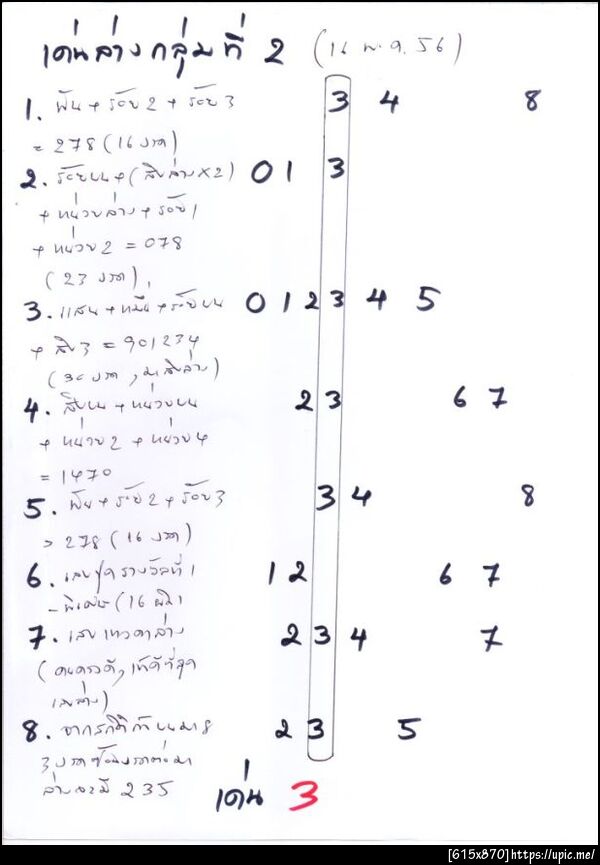 เด่นล่างกลุ่มที่ 2 (16 พ.ค. 56)
1. พัน + ร้อย 2 + ร้อย 3 3 4 8
= 278 (16 งวด)
2. ร้อยบน + (สิบล่าง x2) 0 1 3
+ หน่วยล่าง + ร้อย 1
+ หน่วย 2 = 078
(23 งวด)
3. แสน + หมื่น + ร้อยบน 0 1 2 3 4 5
+ สิบ 3 = 901234
(30 งวด, มาสิบล่าง)
4. สิบบน + หน่วยบน 2 3 6 7
+ หน่วย 2 + หน่วย 4
= 1470
5. พัน + ร้อย 2 + ร้อย 3 3 4 8
= 278 (16 งวด)
6. เลขชุดรางวัลที่ 1 1 2 6 7
- พิเศษ (16
7. เลขเทวดาล่าง 2 3 4 7
เลขล่าง)
8. จากสถิติ 2 3 5
3 งวด
ล่างจะมี 235
เด่น 3
[615x870]https://upic.me/